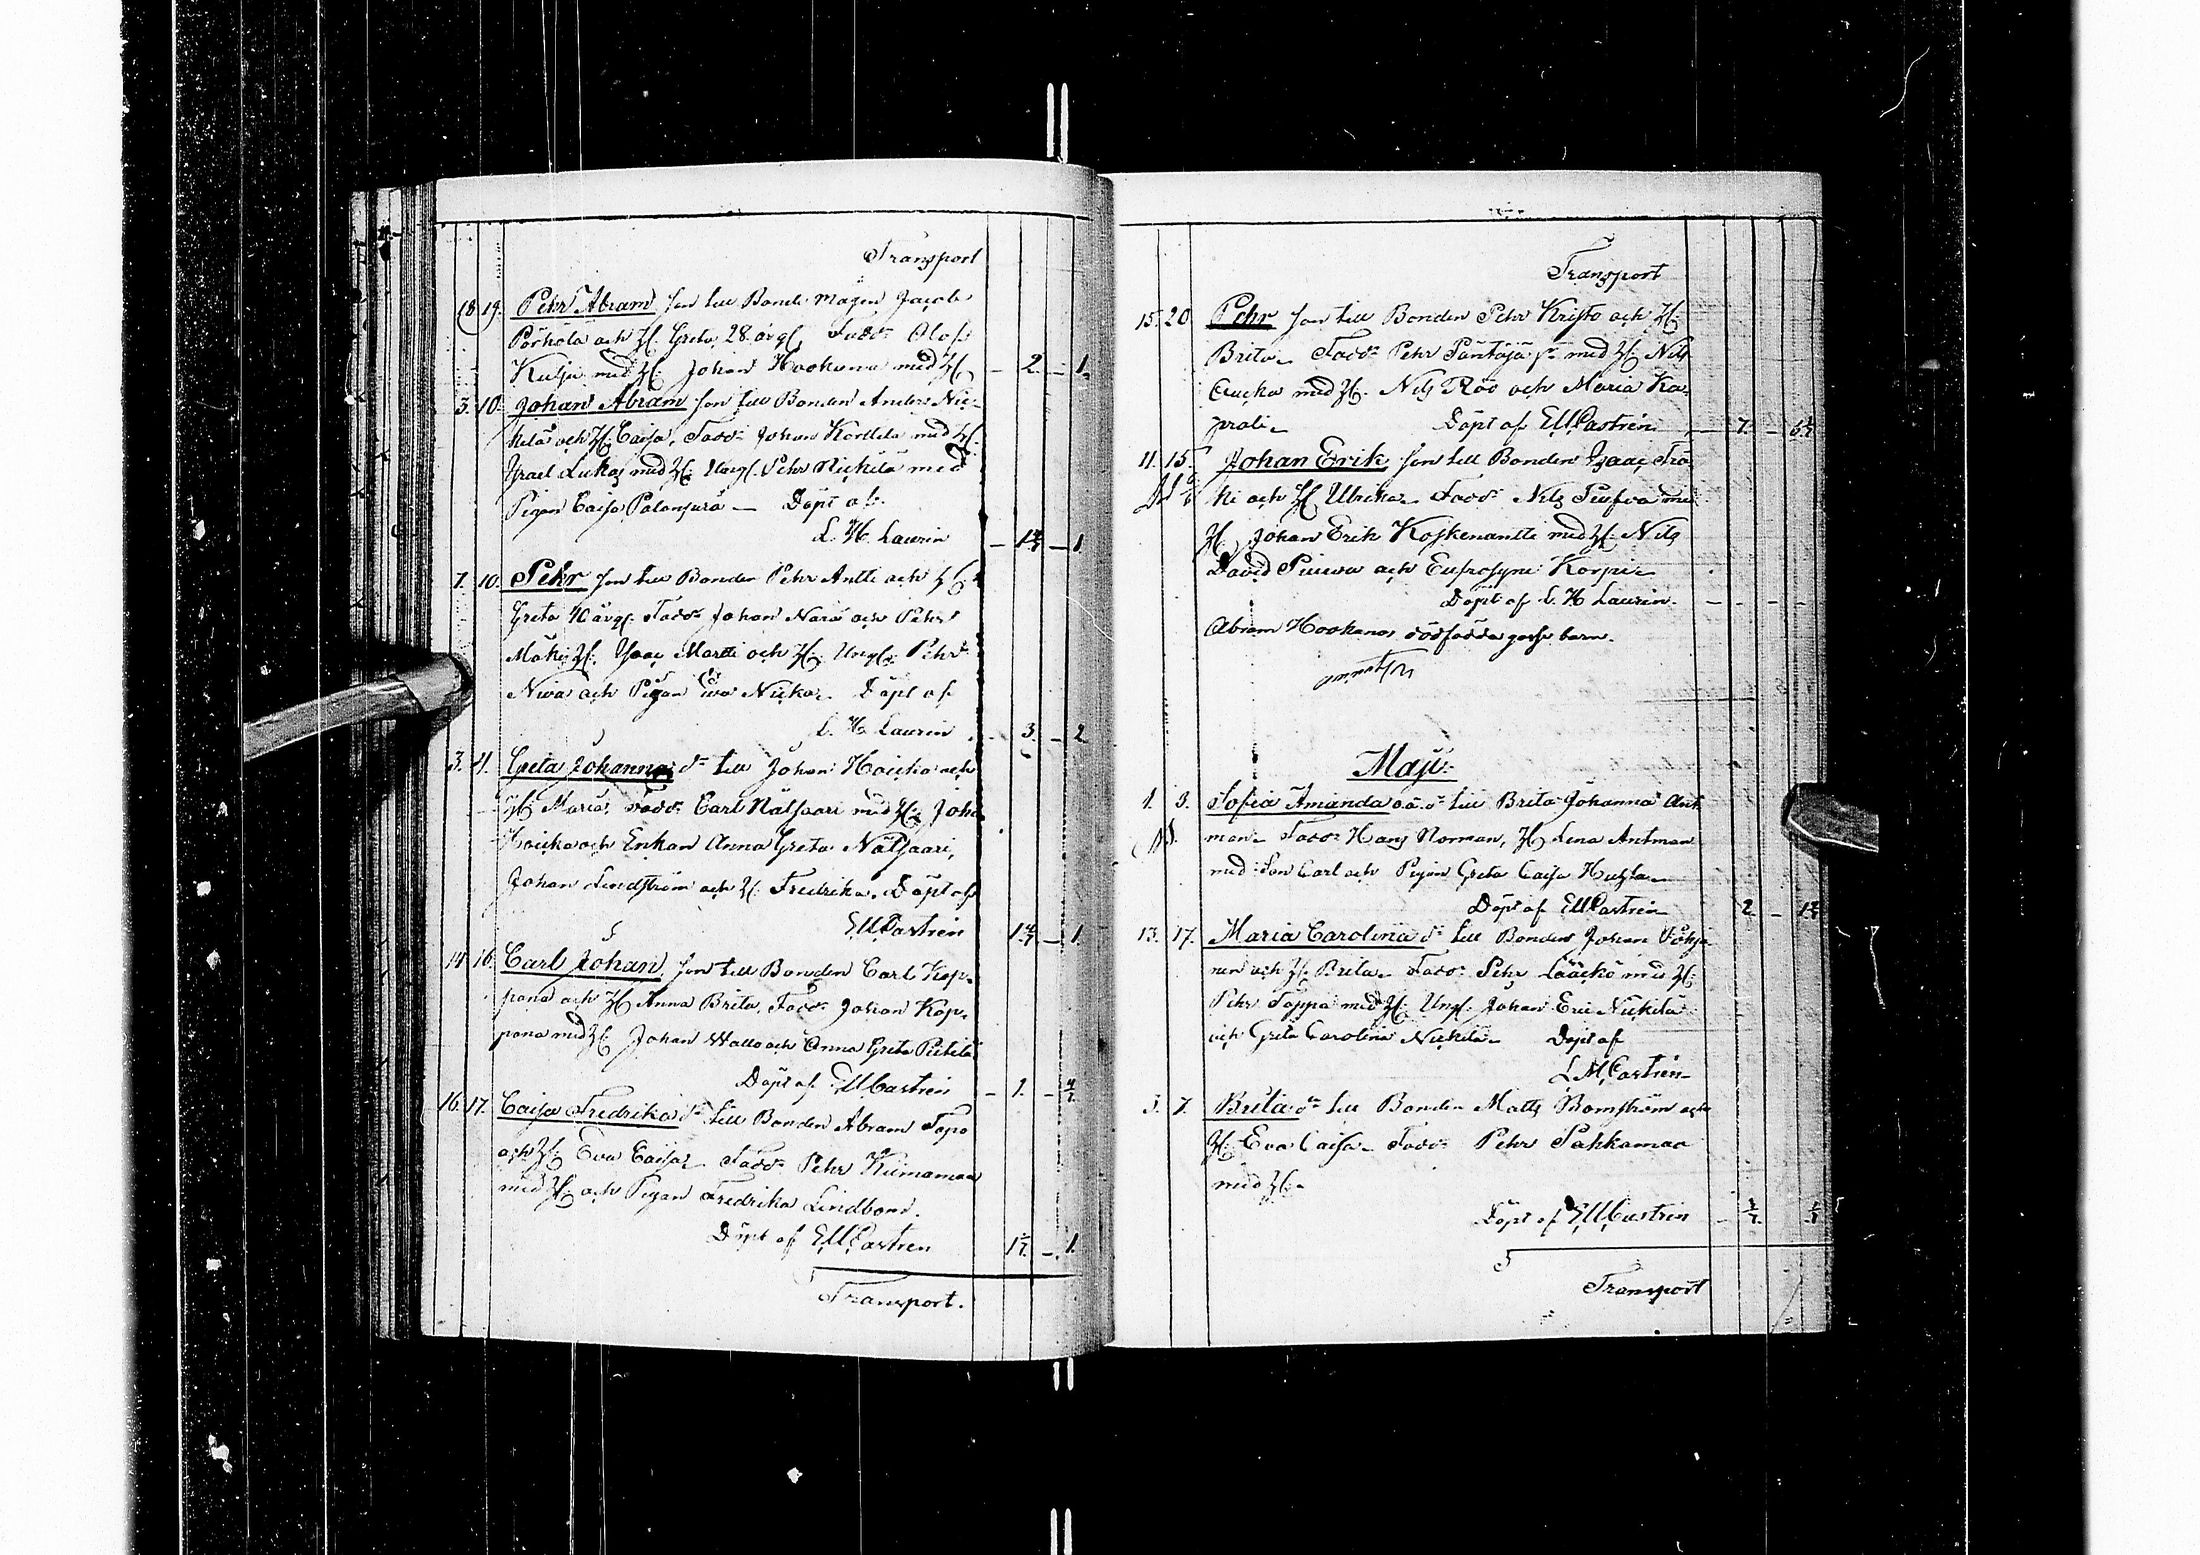 Transport
18 19. Pehr Abram son till Bonde mågen Jacob
Pörhölä och H. Greta, 28. årg. Fadd: Olof
Kulju med H. Johan Hookana med H. — 2. — 1.
3. 10. Johan Abram son till Bonden Anders Nic-
kilä och H. Caisa, Fadd: Johan Kortila med H.
Israel Lukas med H. Ungl. Pehr Nickilä med
Pigan Caisa Palonperä — Döpt af
L. H. Laurin — 1 — 1
7. 10. Pehr son till Bonden Pehr Antti och H.
Greta 40 årg. Fadd: Johan Nara och Pehr
Mäki H. Isaac Martti och H. Ungl: Pehr
Niva och Pigan Eva Nicka. Döpt af
L. H. Laurin — 3. — 2
3. 11. Greta Johanna dr till Johan Hoicka och
H. Maria, Fadd: Carl Nätsaari med H. Joha
Hoicka och Enkan Anna Greta Nätsaari,
Johan Lindström och H. Fredrika. Döpt af
E M Castrén — 1 — 1.
14 16. Carl Johan son till Bonden Carl Kop-
pana och H. Anna Brita, Fadd: Johan Kop-
pana med H. Johan och Anna Greta
Döpt af E M Castrén — 1. —
16. 17. Caisa Fredrika dr till Bonden Abram Tapo
och H. Eva Caisa. Fadd: Pehr Kiimamaa
med H. och Pigan Fredrika Lindbom.
Döpt af E M Castrén — 1. — 1.
Transport.
Transport
15. 20. Pehr son till Bonden Pehr Kristo och H.
Brita. Fadd: Pehr Säntäjä med H. Nils
med H. Nils Röö och Maria Ka-
prali. Döpt af E M Castrén — 7. —
11. 15. Johan Erik son till Bonden Isaac
ki och H. Ulrika. Fadd: Nils med
H. Johan Erik Koskenantti med H. Nils
David och Eufrosyne Korpi.
Döpt af L. H. Laurin. — — — —
Abram Hookanas dödfödda gosse barn.
Maji:
1. 3. Sofia Amanda o.ä. dr till Brita Johanna Ant-
man. Fadd: Hans Norman, H. Lena Antman
med Son Carl och Pigan Greta Caisa
Döpt af E M Castrén 2 — 1
13. 17. Maria Carolina dr till Bonden Johan
nen och H. Brita. Fadd: Pehr Lääckö med H.
Pehr Toppa med H. Ungl. Johan Eric Nickilä
och Greta Carolina Nickilä. Döpt af
E M Castrén
3. 7. Brita dr till Bonden Matts Bomström och
H. Eva Caisa. Fadd: Pehr Pahkamaa
med H.
Döpt af E M Castrén
Transport